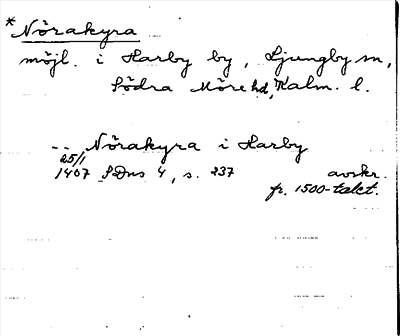 *Nörakyra
möjl. i Harby by, Ljungby sn,
Södra Möre hd, Kalm. l.
-- Nörakyra i Harby
25/1
1407 SDns 4, s. 237 avskr.
fr. 1500-talet.